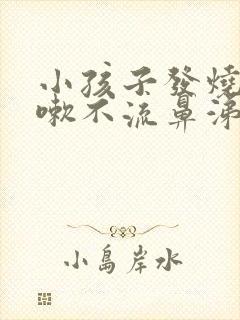 小孩子發燒
嗽不流鼻涕
小島岸水